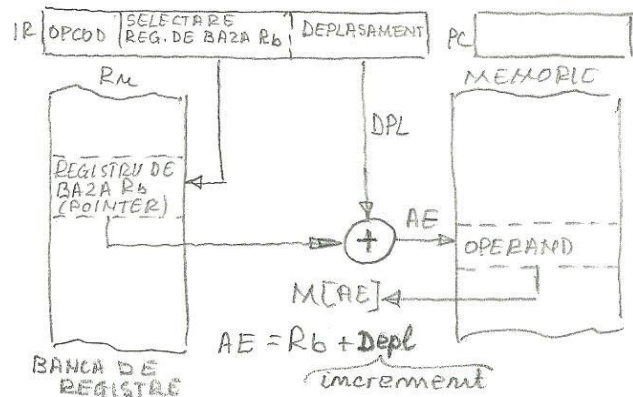 IR OPCOD SELECTARE REG. DE BAZA Rb DEPLASAMENT PC
Rn MEMORIE
DPL
REGISTRU DE
BAZA Rb
(POINTER)
+ AE
OPERAND
M[AE]
AE = Rb + Depl
increment
BANCA DE
REGISTRE